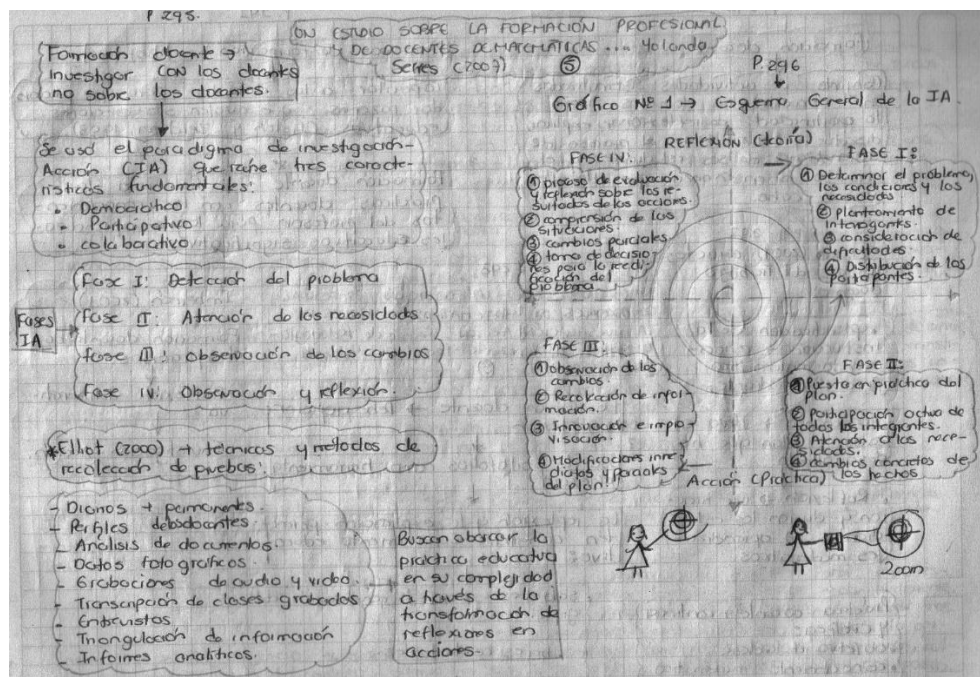 P. 295.
UN ESTUDIO SOBRE LA FORMACIÓN PROFESIONAL
DE DOCENTES DE MATEMÁTICAS ... Yolanda
Serres (2007) ⑤
Formación docente →
Investigar CON los docentes
no sobre los docentes.
Se usó el paradigma de investigación-
Acción (IA) que reúne tres caracte-
rísticas fundamentales:
• Democrático
• Participativo
• colaborativo
Fases
IA
Fase I: Detección del problema
Fase II: Atención de las necesidades
fase III: observación de los cambios
Fase IV: Observación y reflexión.
*Elliot (2000) → técnicas y métodos de
recolección de pruebas:
- Diarios + permanentes.
- Perfiles de los docentes
- Análisis de documentos.
- Datos fotográficos.
- Grabaciones de audio y video.
- Transcripción de clases grabadas
- Entrevistas
- Triangulación de información
- Informes analíticos.
Buscan abarcar la
práctica educativa
en su complejidad
a través de la
transformación de
reflexiones en
acciones.
P. 296
Gráfico Nº 1 → Esquema General de la IA.
REFLEXIÓN (teoría)
FASE IV:
① proceso de evaluación
y reflexión sobre los re-
sultados de las acciones.
② comprensión de las
situaciones.
③ cambios parciales
④ toma de decisio-
nes para la redefi-
nición del
problema
FASE I:
① Determinar el problema,
las condiciones y las
necesidades
② planteamiento de
interrogantes.
③ consideración de
dificultades.
④ Distribución de los
participantes
FASE III:
① Observación de los
cambios.
② Recolección de infor-
mación.
③ Innovación e impro-
visación.
④ Modificaciones inme-
diatas y parciales
del plan.
FASE II:
① Puesta en práctica del
plan.
② participación activa de
todos los integrantes.
③ Atención a las nece-
sidades.
④ cambios concretos de
los hechos
Acción (Práctica)
zoom